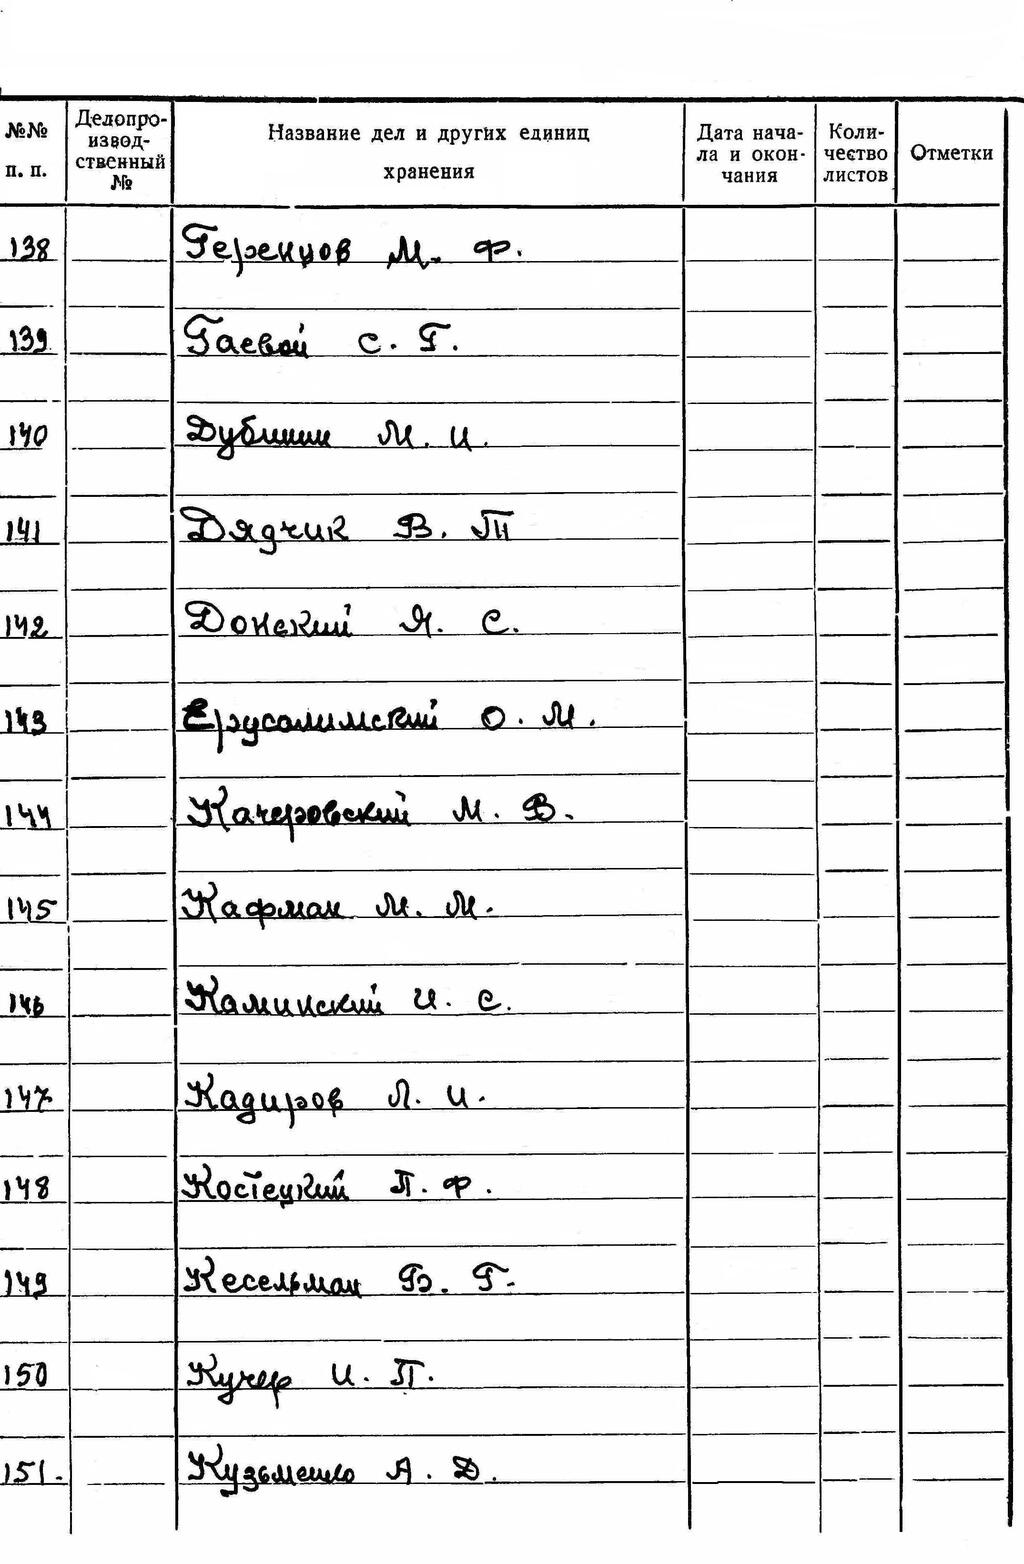 №№ п. п. Делопро-извод-ственный № Название дел и других единиц хранения Дата нача-ла и окон-чания Коли-чество листов Отметки
138 Геренцов М. Ф.
139 Гаевой С. Г.
140 Дубинин М. И.
141 Дядчик В. П
142 Донский Я. С.
143 Ерусалимский О. М.
144 Качеровский М. В.
145 Кафман М. М.
146 Каминский И. С.
147 Кадиров Л. И.
148 Костецкий П. Ф.
149 Кесельман Б. Г.
150 Кучер И. П.
151. Кузьменко А. Д.